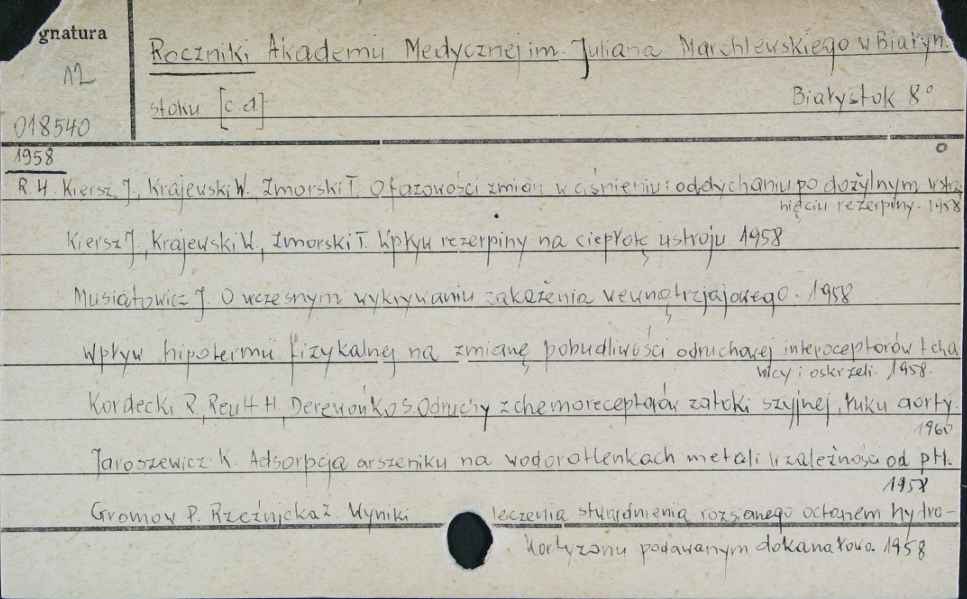 gnatura
Roczniki Akademii Medycznej im. Juliana Marchlewskiego w Białym-
12
stoku [c.d]
Białystok 8°
018540
1958
R. 4 Kiersz J., Krajewski W. Żmorski T. O fazowości zmian w ciśnieniu i oddychaniu po dożylnym wstrzy
nięciu rezerpiny. 1958
Kiersz J, Krajewski W, Żmorski T. Wpływ rezerpiny na ciepłotę ustroju 1958
Musiatowicz J. O wczesnym wykrywaniu zakażenia wewnątrzjajowego. 1958
Wpływ hipotermii fizykalnej na zmianę pobudliwości odruchowej interoceptorów tcha
wicy i oskrzeli. 1958.
Kordecki R, H, Dereńko S. Odruchy z chemoreceptorów zatoki szyjnej, łuku aorty.
1960
Jaroszewicz K. Adsorpcja arszeniku na wodorotlenkach metali w zależności od pH.
1958
Gromow P. Rzeźnicka Z. Wyniki leczenia stwardnienia rozsianego octanem hydro-
kortyzonu podawanym dokanałowo. 1958